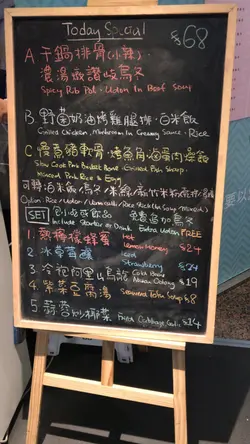 Today Special
$68
A 干鍋排骨(小辣)
濃湯豉讚岐烏冬
Spicy Rib Pot. Udon In Beef Soup
B 野菌奶油烤雞腿排·白米飯
Grilled Chicken, Mushroom In Creamy Sauce · Rice
C 慢煮豬軟骨·烤魚角·滷肉燥飯
Slow Cook Pork Bucket Bone · Grilled Fish
Minced Pork Rice
可轉:白米飯/烏冬/米線
Option: Rice / Udon / Vermicelli / Rice Stick (In Soup)
SET 包小品或飲品 免費追加烏冬
Include Starter or Drink. Extra Udon FREE
1. 熱檸檬蜂蜜 Hot Lemon Honey $24
2 冰 Iced Strawberry $24
3 冷泡阿里山烏龍 Cold Brew Oolong $19
4. 紫菜豆腐湯 Seaweed Tofu Soup $8
5 蒜蓉炒椰菜 Fried Cabbage Garlic $14